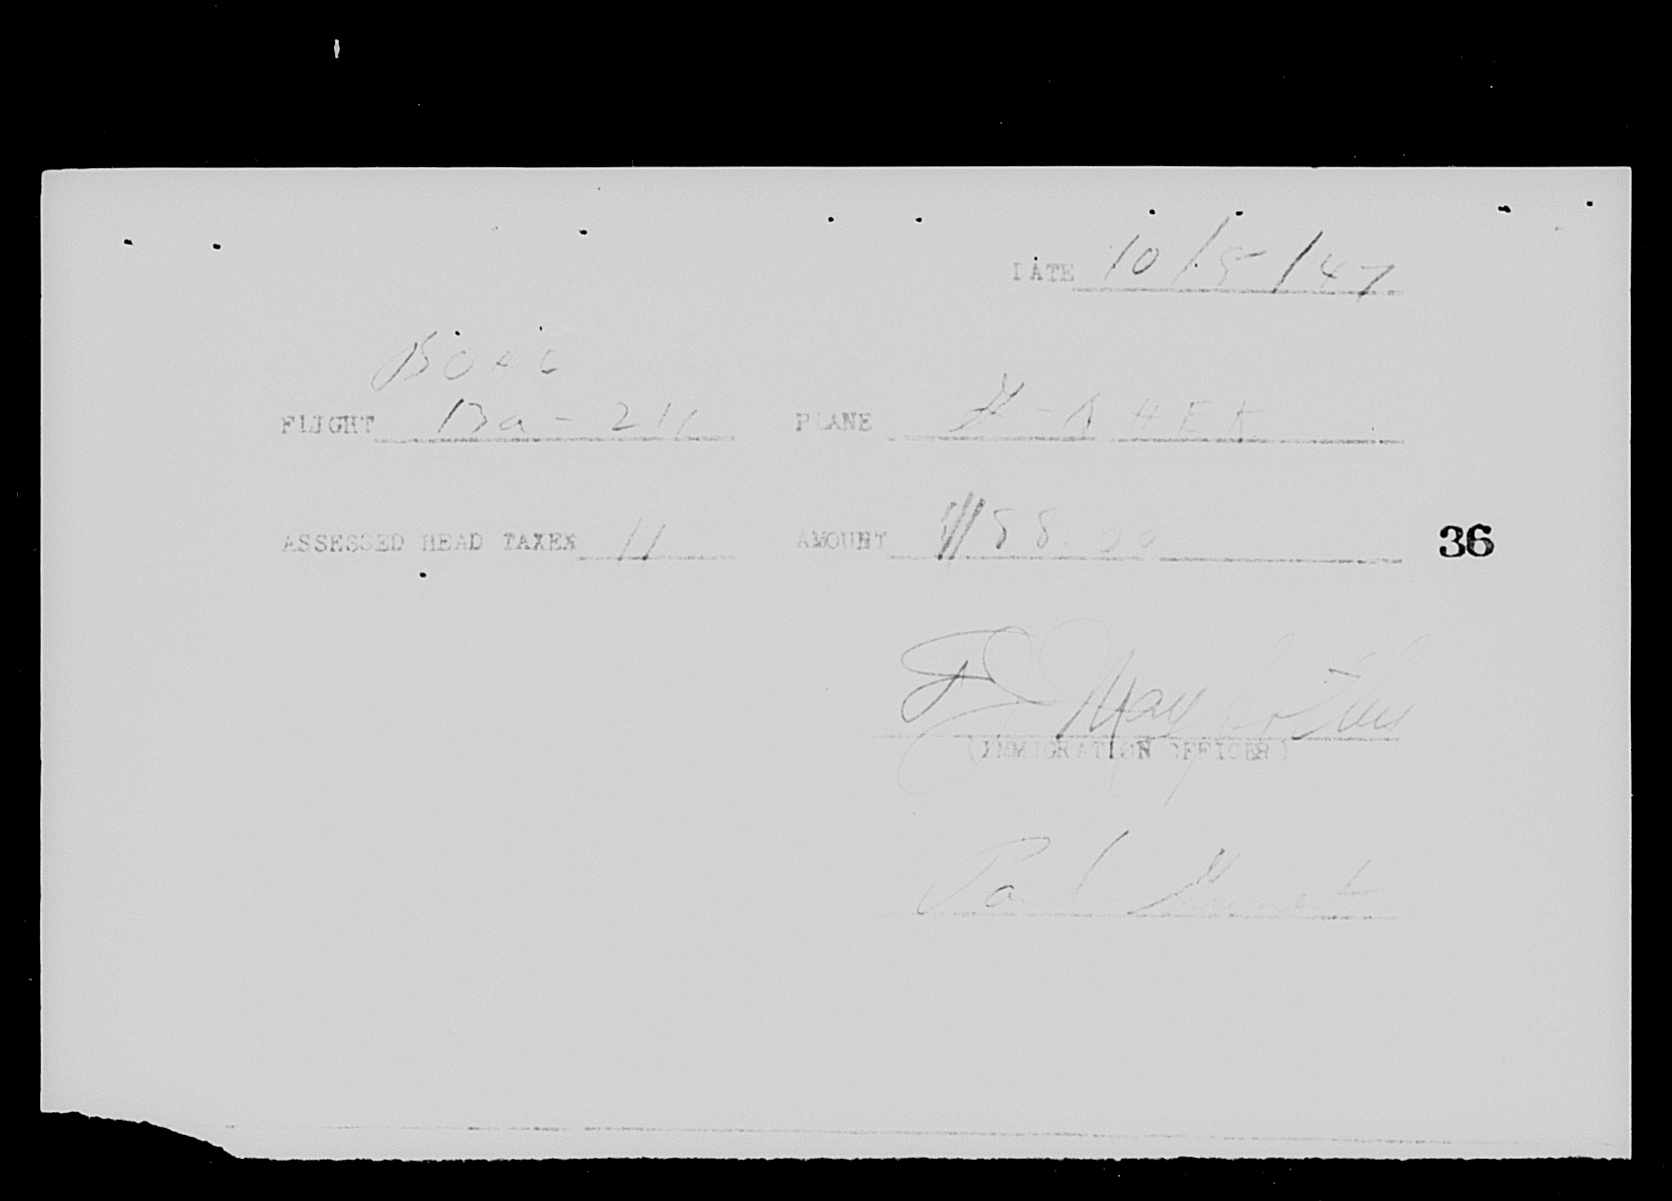 DATE 10/5/47
BOAC
FLIGHT Ba-211 PLANE G-AHEK
ASSESSED HEAD TAXES 11 AMOUNT 88.00
36
(IMMIGRATION OFFICER)